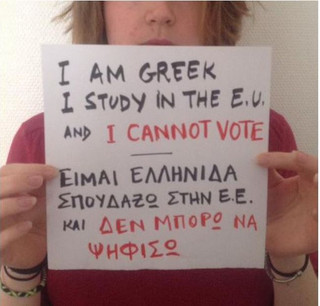 I AM GREEK
I STUDY IN THE E.U.
AND I CANNOT VOTE
ΕΙΜΑΙ ΕΛΛΗΝΙΔΑ
ΣΠΟΥΔΑΖΩ ΣΤΗΝ Ε.Ε.
ΚΑΙ ΔΕΝ ΜΠΟΡΩ ΝΑ
ΨΗΦΙΣΩ